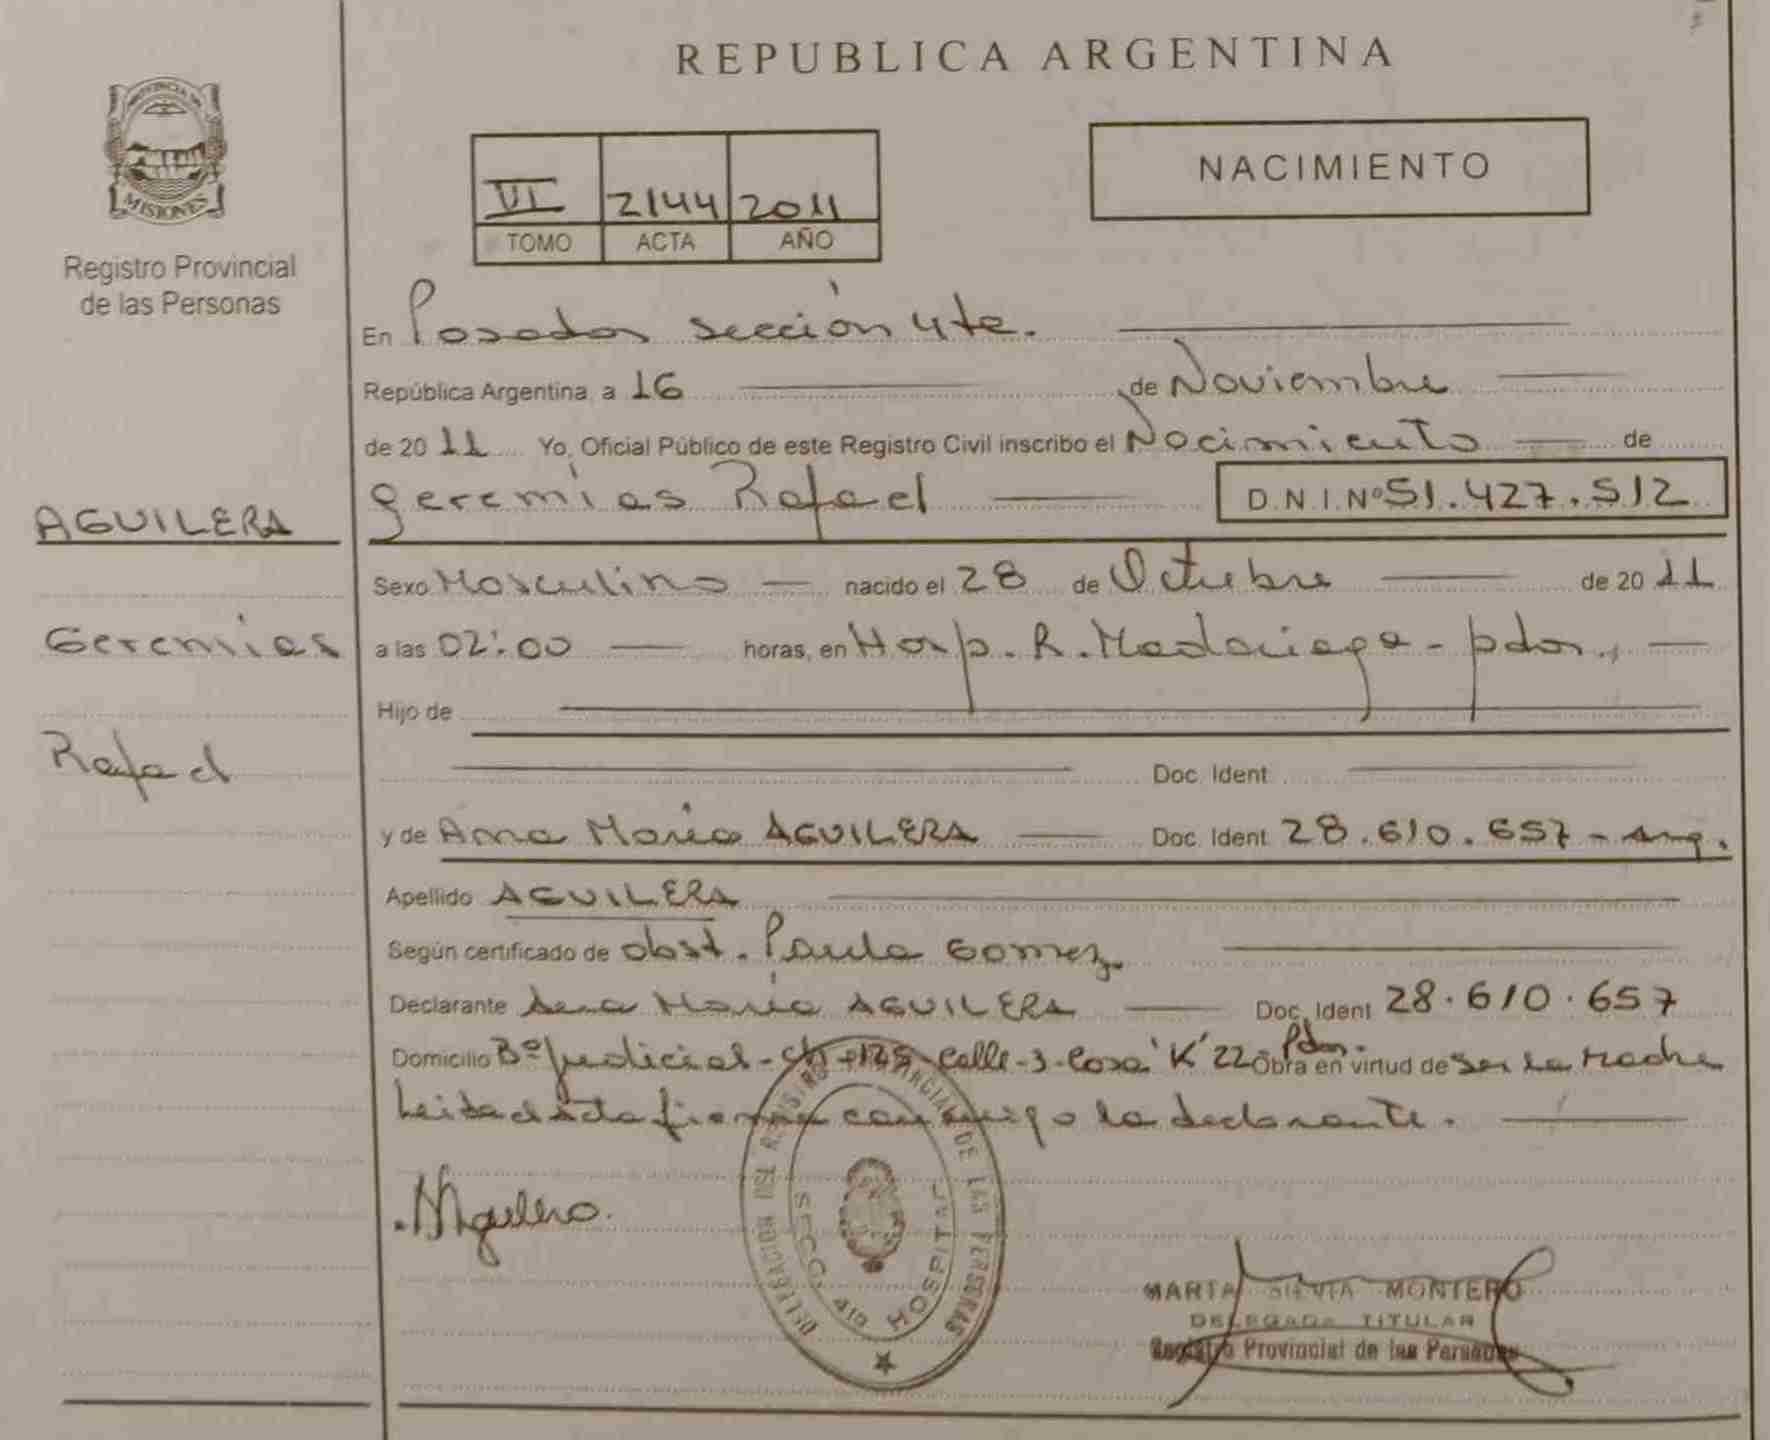 REPUBLICA ARGENTINA
PROVINCIA DE
MISIONES
Registro Provincial
de las Personas
VI 2144 2011
TOMO ACTA AÑO
NACIMIENTO
En Posadas sección 4ta.
República Argentina, a 16 de Noviembre
de 2011 Yo, Oficial Público de este Registro Civil inscribo el Nacimiento de
AGUILERA
Geremias Rafael D.N.I.Nº 51.427.512
Sexo Masculino nacido el 28 de Octubre de 2011
Geremias
a las 02:00 horas, en Hosp. R. Madariaga - pdas.,
Hijo de
Rafael
Doc. Ident
y de Ana María AGUILERA Doc. Ident 28.610.657 - Arg.
Apellido AGUILERA
Según certificado de obst. Paula Gomez.
Declarante Ana María AGUILERA Doc. Ident 28.610.657
Domicilio Bº Judicial - Ch 125 - Calle - 3 - Casa 'K' 22 Pdas. Obra en virtud de ser la Madre
Leida el Acta firma conmigo la declarante.
DELEGACION DEL REGISTRO PROVINCIAL DE LAS PERSONAS
SECC. 4ta HOSPITAL
MARTA SILVIA MONTERO
DELEGADA TITULAR
Registro Provincial de las Personas